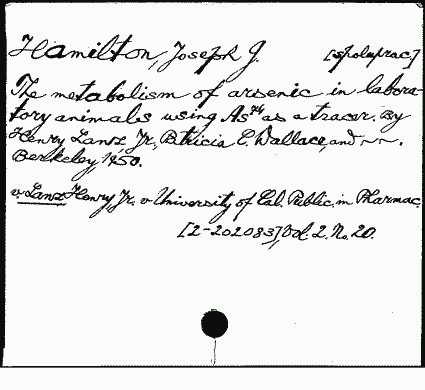 Hamilton, Joseph G. [spoluprac.]
The metabolism of arsenic in labora-
tory animals using As⁷⁴ as a tracer. By
Henry Lanz Jr., Patricia C. Wallace, and ~~.
Berkeley, 1950.
v. Lanz Henry, Jr. v University of Cal. Public. in Pharmac.
[2-202083], Vol. 2. No. 20.